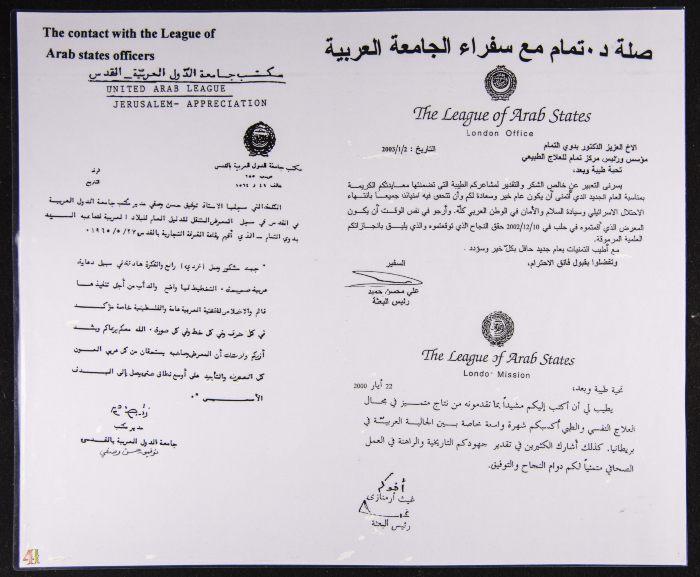 The contact with the League of
Arab states officers
صلة د. تمام مع سفراء الجامعة العربية
مكتب جامعة الدول العربية - القدس
UNITED ARAB LEAGUE
JERUSALEM- APPRECIATION
مكتب جامعة الدول العربية بالقدس
ص.ب ٢٥٥
هاتف
الرقم
التاريخ
الكلمة التي سجلها الاستاذ توفيق حسن وصفي مدير مكتب جامعة الدول العربية
في القدس في سجل المعرض المتنقل للدليل العام للبلاد العربية لصاحبه السيد
بدوي التمام - الذي أقيم بقاعة الغرفة التجارية بالقدس ٢٧ / ٥ / ١٩٦٥ .
" جهد مشكور وعمل رائع والفكرة هادئة في سبيل دعاية
عربية التخطيط لها واضح والدأب من أجل تنفيذها
قائم والاخلاص للقضية العربية عامة والفلسطينية خاصة مؤكد
في كل حرف وفي كل خط وفي كل صورة . الله معكم يرعاكم ويشد
أزركم أن المعرض وصاحبه يستحقان من كل عربي العون
كل التعضيد والتأييد على أوسع نطاق حتى يصل إلى الهدف
الأسمى " .
مدير مكتب
جامعة الدول العربية بالقدس
توفيق حسن وصفي
The League of Arab States
London Office
الاخ العزيز الدكتور بدوي التمام
التاريخ : 2003/1/2
مؤسس ورئيس مركز تمام للعلاج الطبيعي
تحية طيبة وبعد،
يسرني التعبير عن خالص الشكر والتقدير لمشاعركم الطيبة التي تضمنتها معايدتكم الكريمة
بمناسبة العام الجديد الذي أتمنى أن يكون عام خير وسعادة لكم وأن تتحقق فيه امنياتنا جميعا بانتهاء
الاحتلال الاسرائيلي وسيادة السلام والأمان في الوطن العربي كلّه. وأرجو في نفس الوقت أن يكون
المعرض الذي أقمتموه في حلب في 2002/12/10 حقق النجاح الذي توقعتموه والذي يليق بانجازاتكم
العلمية المرموقة.
مع أطيب التمنيات بعام جديد حافل بكلّ خير وسؤدد .
وتفضلوا بقبول فائق الاحترام،
السفير
علي محسن حميد
رئيس البعثة
The League of Arab States
London Mission
22 أيار 2000
تحية طيبة وبعد،
يطيب لي أن أكتب إليكم مشيداً بما تقدمونه من نتاج متميز في مجال
العلاج النفسي والطبي أكسبكم شهرة واسعة خاصة بين الجالية العربيّة في
بريطانيا. كذلك أشارك الكثيرين في تقدير جهودكم التاريخية والراهنة في العمل
الصحافي متمنياً لكم دوام النجاح والتوفيق.
أخوكم
غيث أرمنازي
رئيس البعثة
41